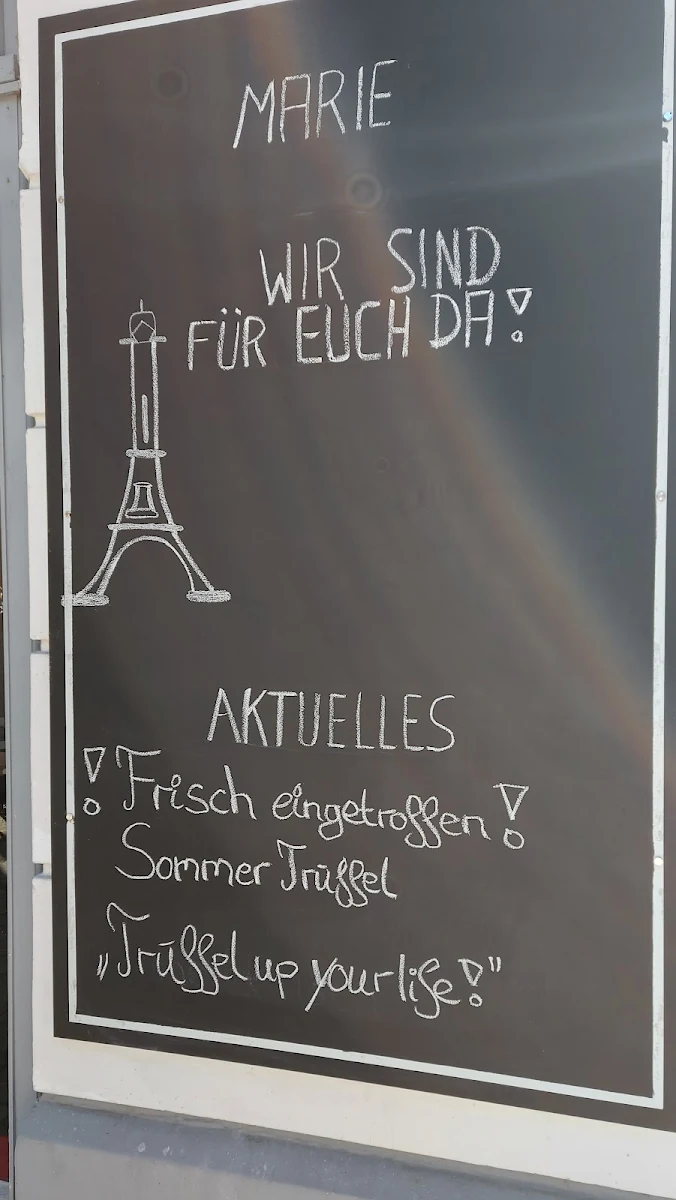 MARIE
WIR SIND
FÜR EUCH DA!
AKTUELLES
! Frisch eingetroffen!
Sommer Trüffel
„Trüffel up your life!"